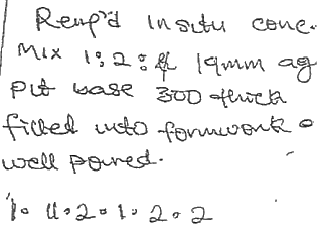 Renf'd Insitu conc.
Mix 1:2:4 19mm ag
pit base 300 thick
filled into formwork
well poured.
1.4.2.1.2.2